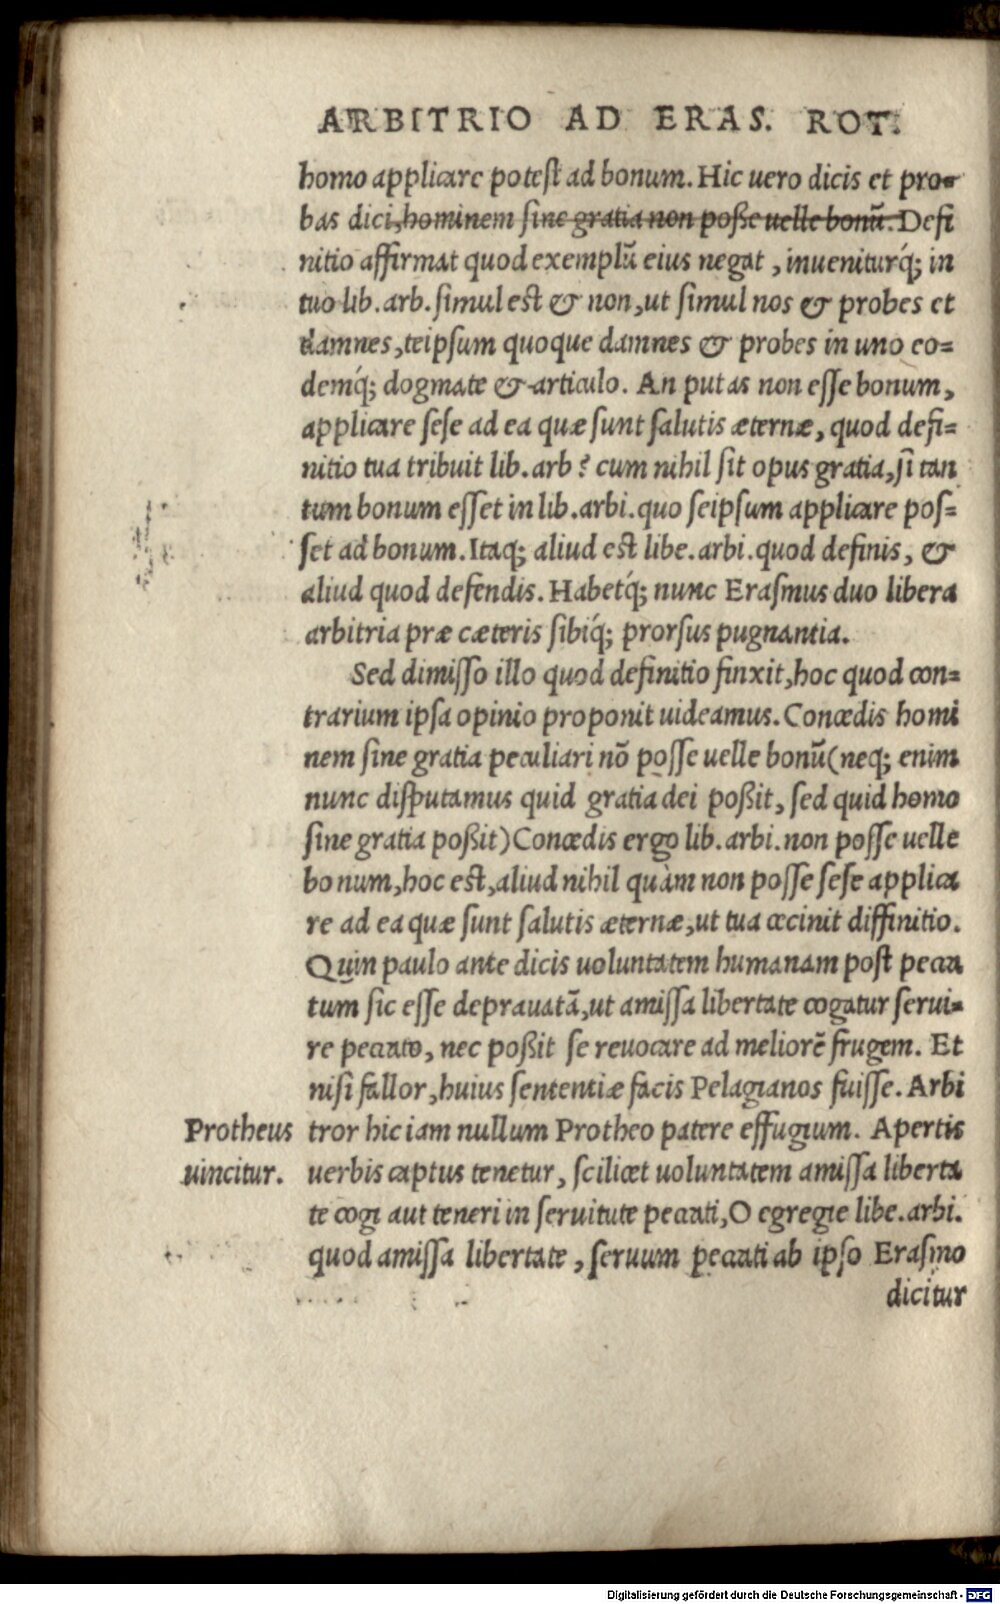 ARBITRIO AD ERAS. ROT.
homo applicare potest ad bonum. Hic uero dicis et pro-
bas dici, hominem sine gratia non posse uelle bonū. Defi
nitio affirmat quod exemplū eius negat, inueniturq́; in
tuo lib. arb. simul est & non, ut simul nos & probes et
damnes, teipsum quoque damnes & probes in uno eo=
demq́; dogmate & articulo. An putas non esse bonum,
applicare sese ad ea quæ sunt salutis æternæ, quod defi=
nitio tua tribuit lib. arb? cum nihil sit opus gratia, si tan
tum bonum esset in lib. arbi. quo seipsum applicare pos=
set ad bonum. Itaq; aliud est libe. arbi. quod definis, &
aliud quod defendis. Habetq́; nunc Erasmus duo libera
arbitria præ cæteris sibiq́; prorsus pugnantia.
Sed dimisso illo quod definitio finxit, hoc quod con=
trarium ipsa opinio proponit uideamus. Concedis homi
nem sine gratia peculiari nō posse uelle bonū (neq; enim
nunc disputamus quid gratia dei poßit, sed quid homo
sine gratia poßit) Concedis ergo lib. arbi. non posse uelle
bonum, hoc est, aliud nihil quàm non posse sese applica
re ad ea quæ sunt salutis æternæ, ut tua cecinit diffinitio.
Quin paulo ante dicis uoluntatem humanam post pecca
tum sic esse deprauatā, ut amissa libertate cogatur serui=
re peccato, nec poßit se reuocare ad meliorē frugem. Et
nisi fallor, huius sententiæ facis Pelagianos fuisse. Arbi
Protheus
uincitur.
tror hic iam nullum Protheo patere effugium. Apertis
uerbis captus tenetur, scilicet uoluntatem amissa liberta
te cogi aut teneri in seruitute peccati, O egregie libe. arbi.
quod amissa libertate, seruum peccati ab ipso Erasmo
dicitur
Digitalisierung gefördert durch die Deutsche Forschungsgemeinschaft - DFG